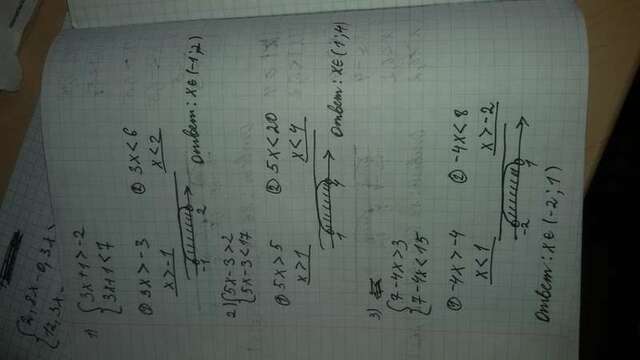 1) { 3x+1>-2
{ 3x+1<7
① 3x>-3 ② 3x<6
x>-1 x<2
-1 2
Ответ: x∈(-1;2)
2) { 5x-3>2
{ 5x-3<17
① 5x>5 ② 5x<20
x>1 x<4
1 4
Ответ: x∈(1;4)
3)
{ 7-4x>3
{ 7-4x<15
① -4x>-4 ② -4x<8
x<1 x>-2
-2 1
Ответ: x∈(-2;1)